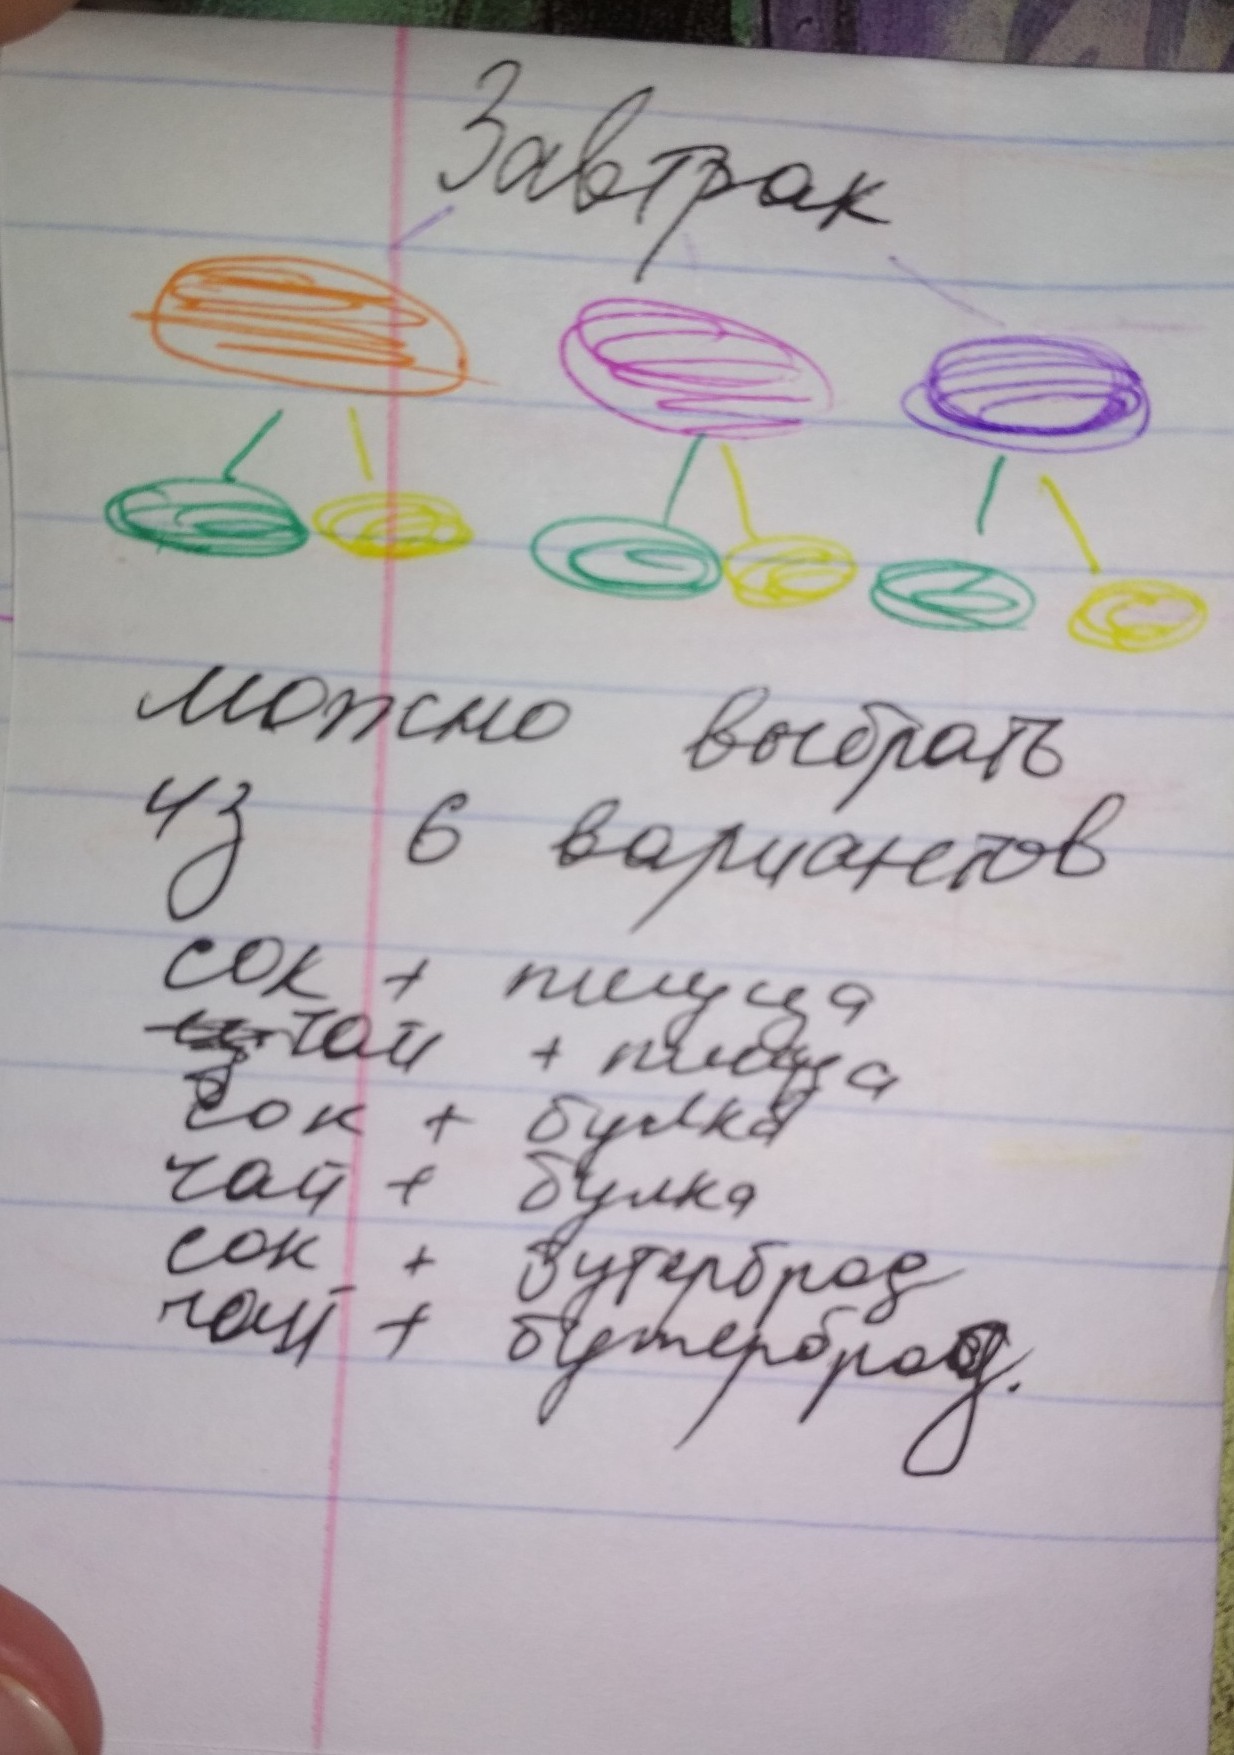 Завтрак
можно выбрать
из 6 вариантов
сок + пицца
чай + пицца
сок + булка
чай + булка
сок + бутерброд
чай + бутерброд.